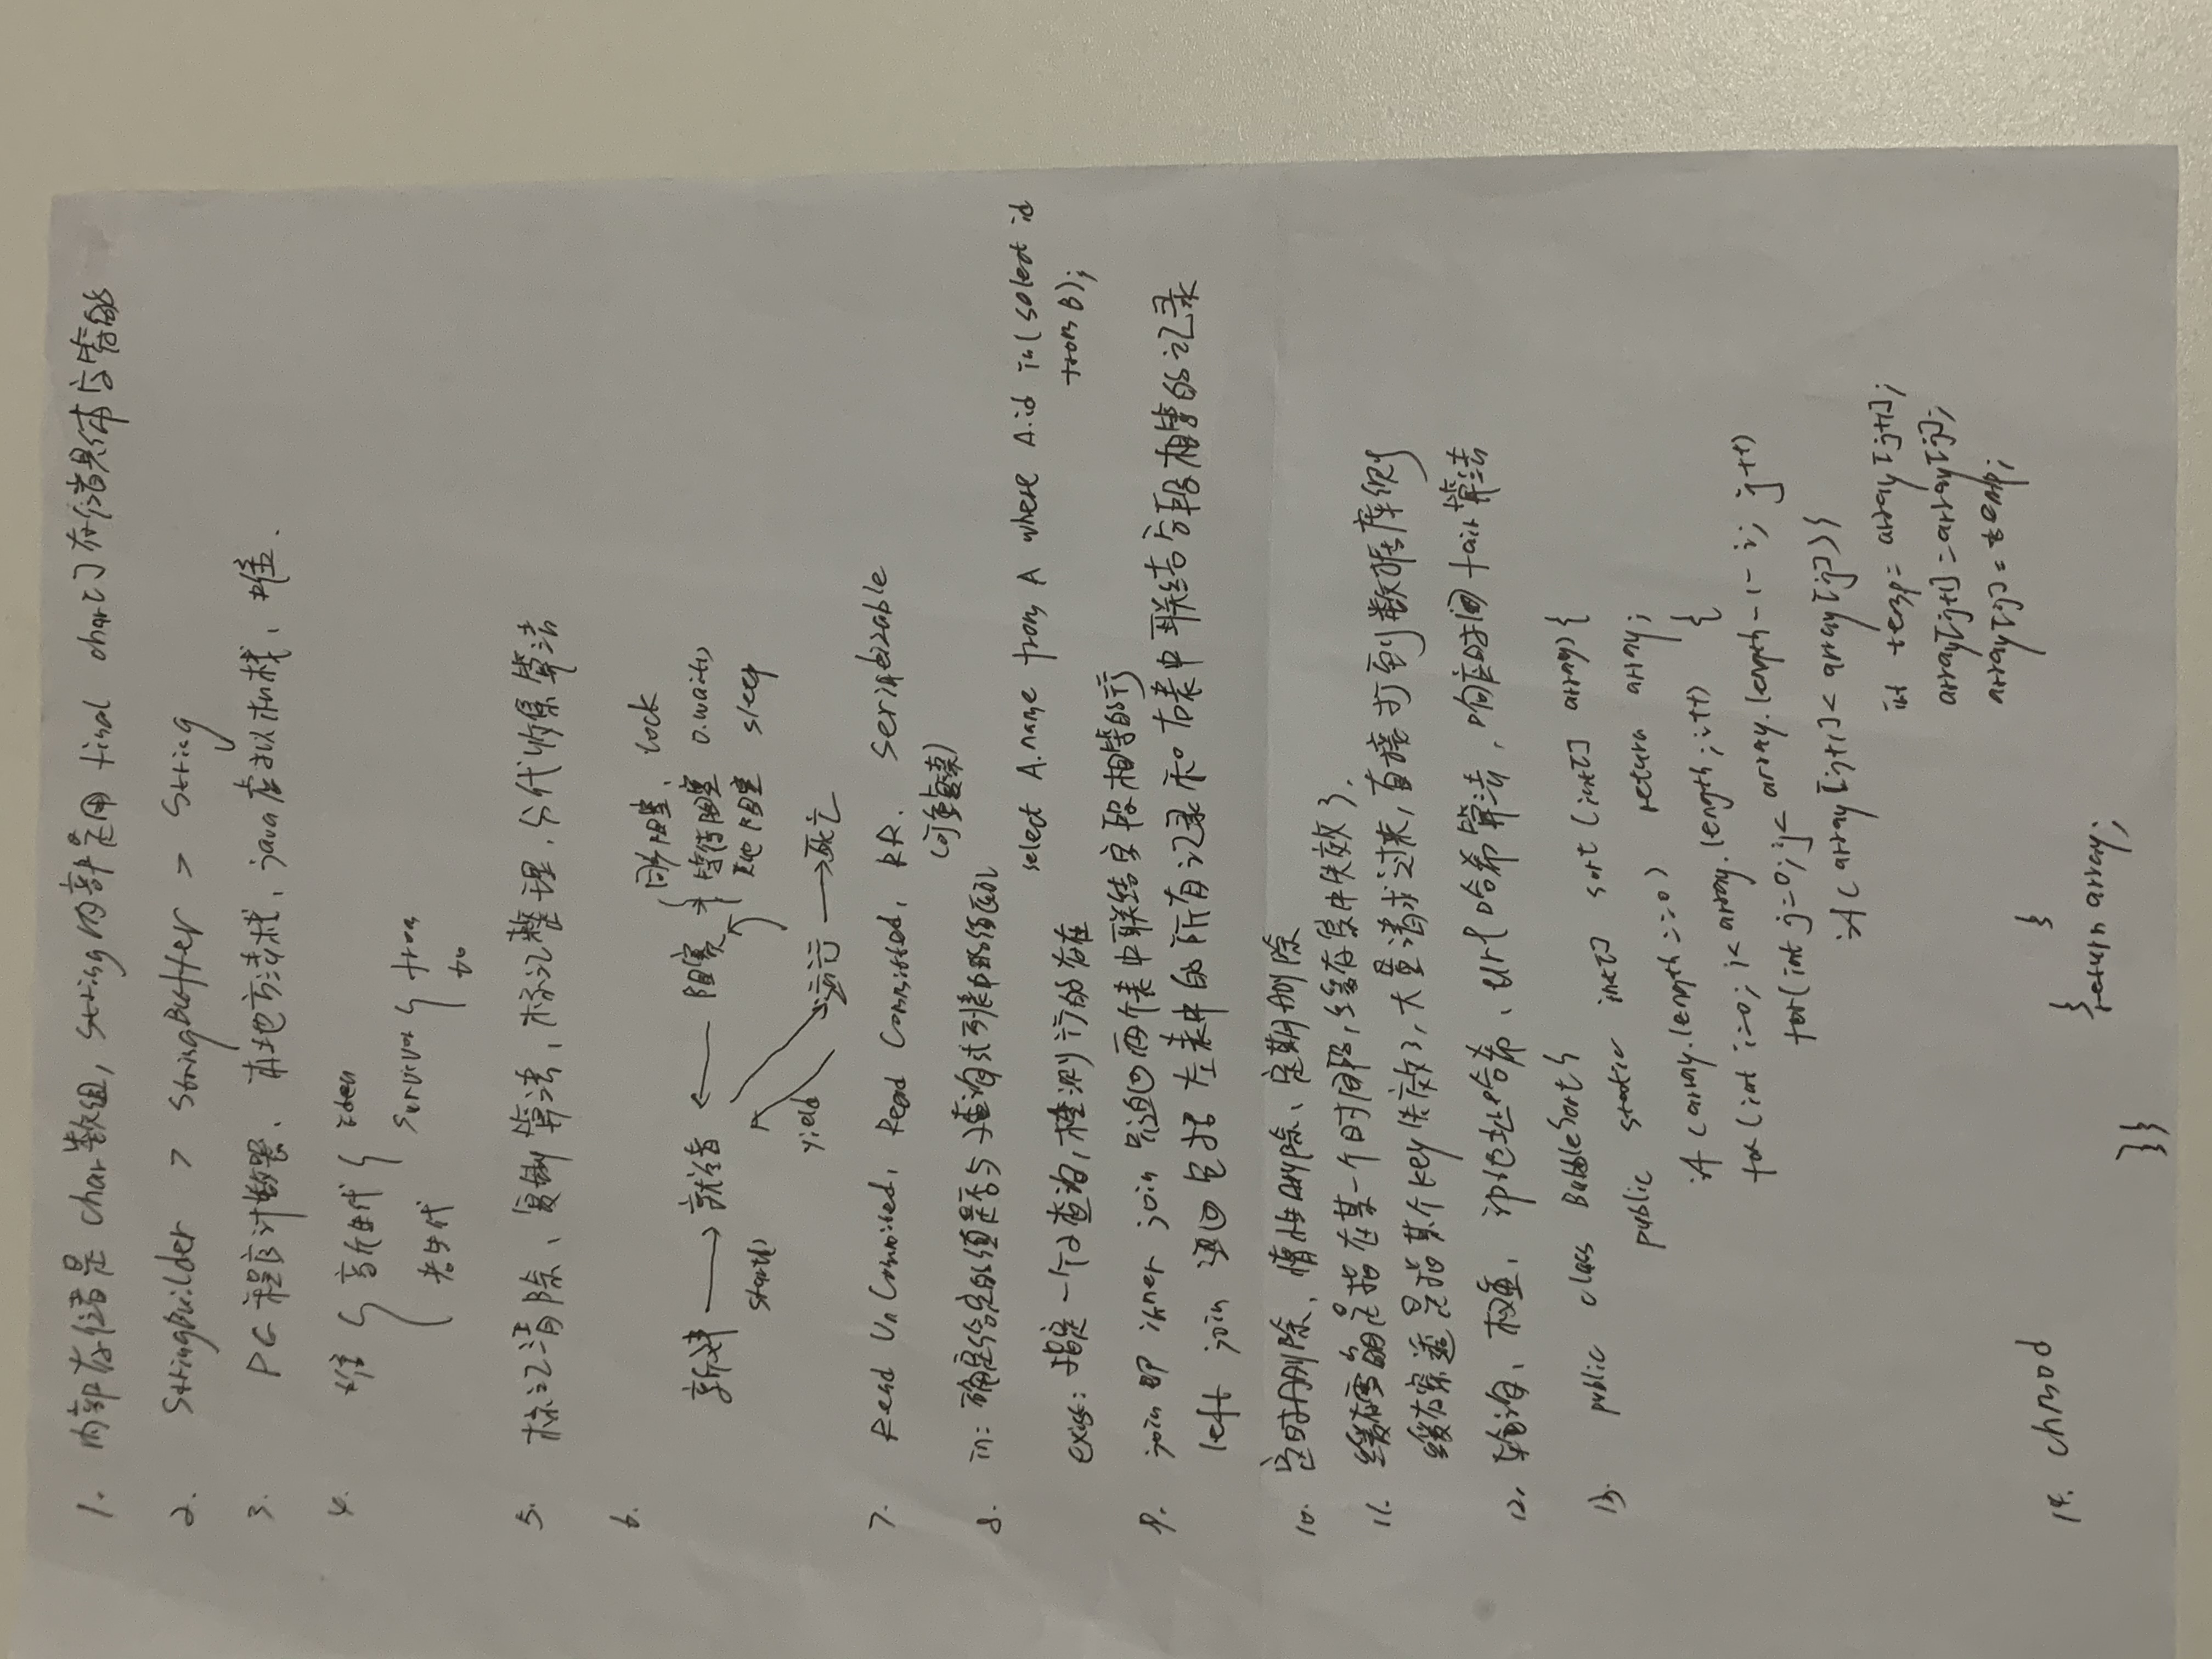 1. 内部存储是char数组, String内部是用 final char[] 存储具体字符的
2. StringBuilder > StringBuffer > String
3. PC程序计数器、本地方法栈、java虚拟机栈、堆.
4. 堆 { 新生代 { iden
survivor { from
老生代
to
5. 标记清除、复制算法、标记整理、分代收集算法
6.
同步阻塞、lock
新建 → 就绪 ← 阻塞 → 等待阻塞 O.wait()
start() 其他阻塞 sleep
yield 运行 → 死亡
7. Read UnCommited, Read Committed, RR. Serializable
(可重复读)
8. in: 确定给定的值是否与子查询或列表中的值匹配
select A.name from A where A.id in(select id
from B);
exist: 指定一个子查询, 检测行的存在
9. join即 inner join 只返回两个表中联结字段相等的行
left join 返回包括左表中的所有记录和右表中联结字段相等的记录
10. 定时删除、惰性删除、定期删除
11. 缓存雪崩是指在某一个时间段, 缓存集中失效了.
缓存穿透是指某个key失效了, 大量请求过来, 直接打到数据库侧
12. 轮询、权重、ip地址哈希、url哈希算法, 响应时间fair算法
13. public class BubbleSort{
public static int[] sort(int[] array){
if(array.length==0) return array;
for(int i=0; i<array.length; i++) {
for(int j=0; j<array.length-1-i; j++)
if(array[j+1]<array[j]){
int temp=array[j+1];
array[j+1]=array[j];
array[j]=temp;
}
14. chmod
}
return array;
}}